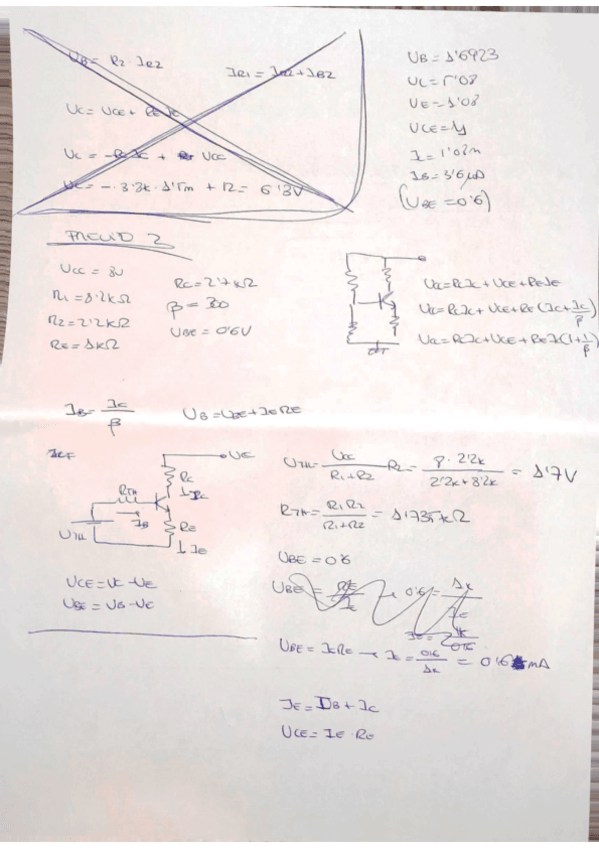 UB = R2 · IR2
IR1 = IR2 + IB2
UC = UCE + REIE
UC = -RCIC + UCC
UC = -3'3k · 1'5m + 12 = 6'3V
UB = 1'6923
UC = 5'08
UE = 1'08
UCE = 4
I = 1'08m
IB = 3'6μA
(UBE = 0'6)
PREVIO 2
UCC = 8V
R1 = 8'2kΩ
R2 = 2'2kΩ
RE = 1kΩ
RC = 2'7kΩ
β = 300
UBE = 0'6V
UCC = RCIC + UCE + REIE
UCC = RCIC + UCE + RE (IC + IC/β)
UCC = RCIC + UCE + REIC (1 + 1/β)
IB = IC/β
UB = UBE + IE RE
UCC
RC
IC
RTH
IB
RE
UTH
IE
UCE = UC - UE
UBE = UB - UE
UTH = UCC/(R1 + R2) R2 = 8 · 2'2k/(2'2k + 8'2k) = 1'7V
RTH = R1R2/(R1 + R2) = 1'735kΩ
UBE = 0'6
UBE = RE/IE → 0'6 = 1k/IE
UBE = IERE → IE = 0'6/1k = 0'6 mA
IE = IB + IC
UCE = IE · RE